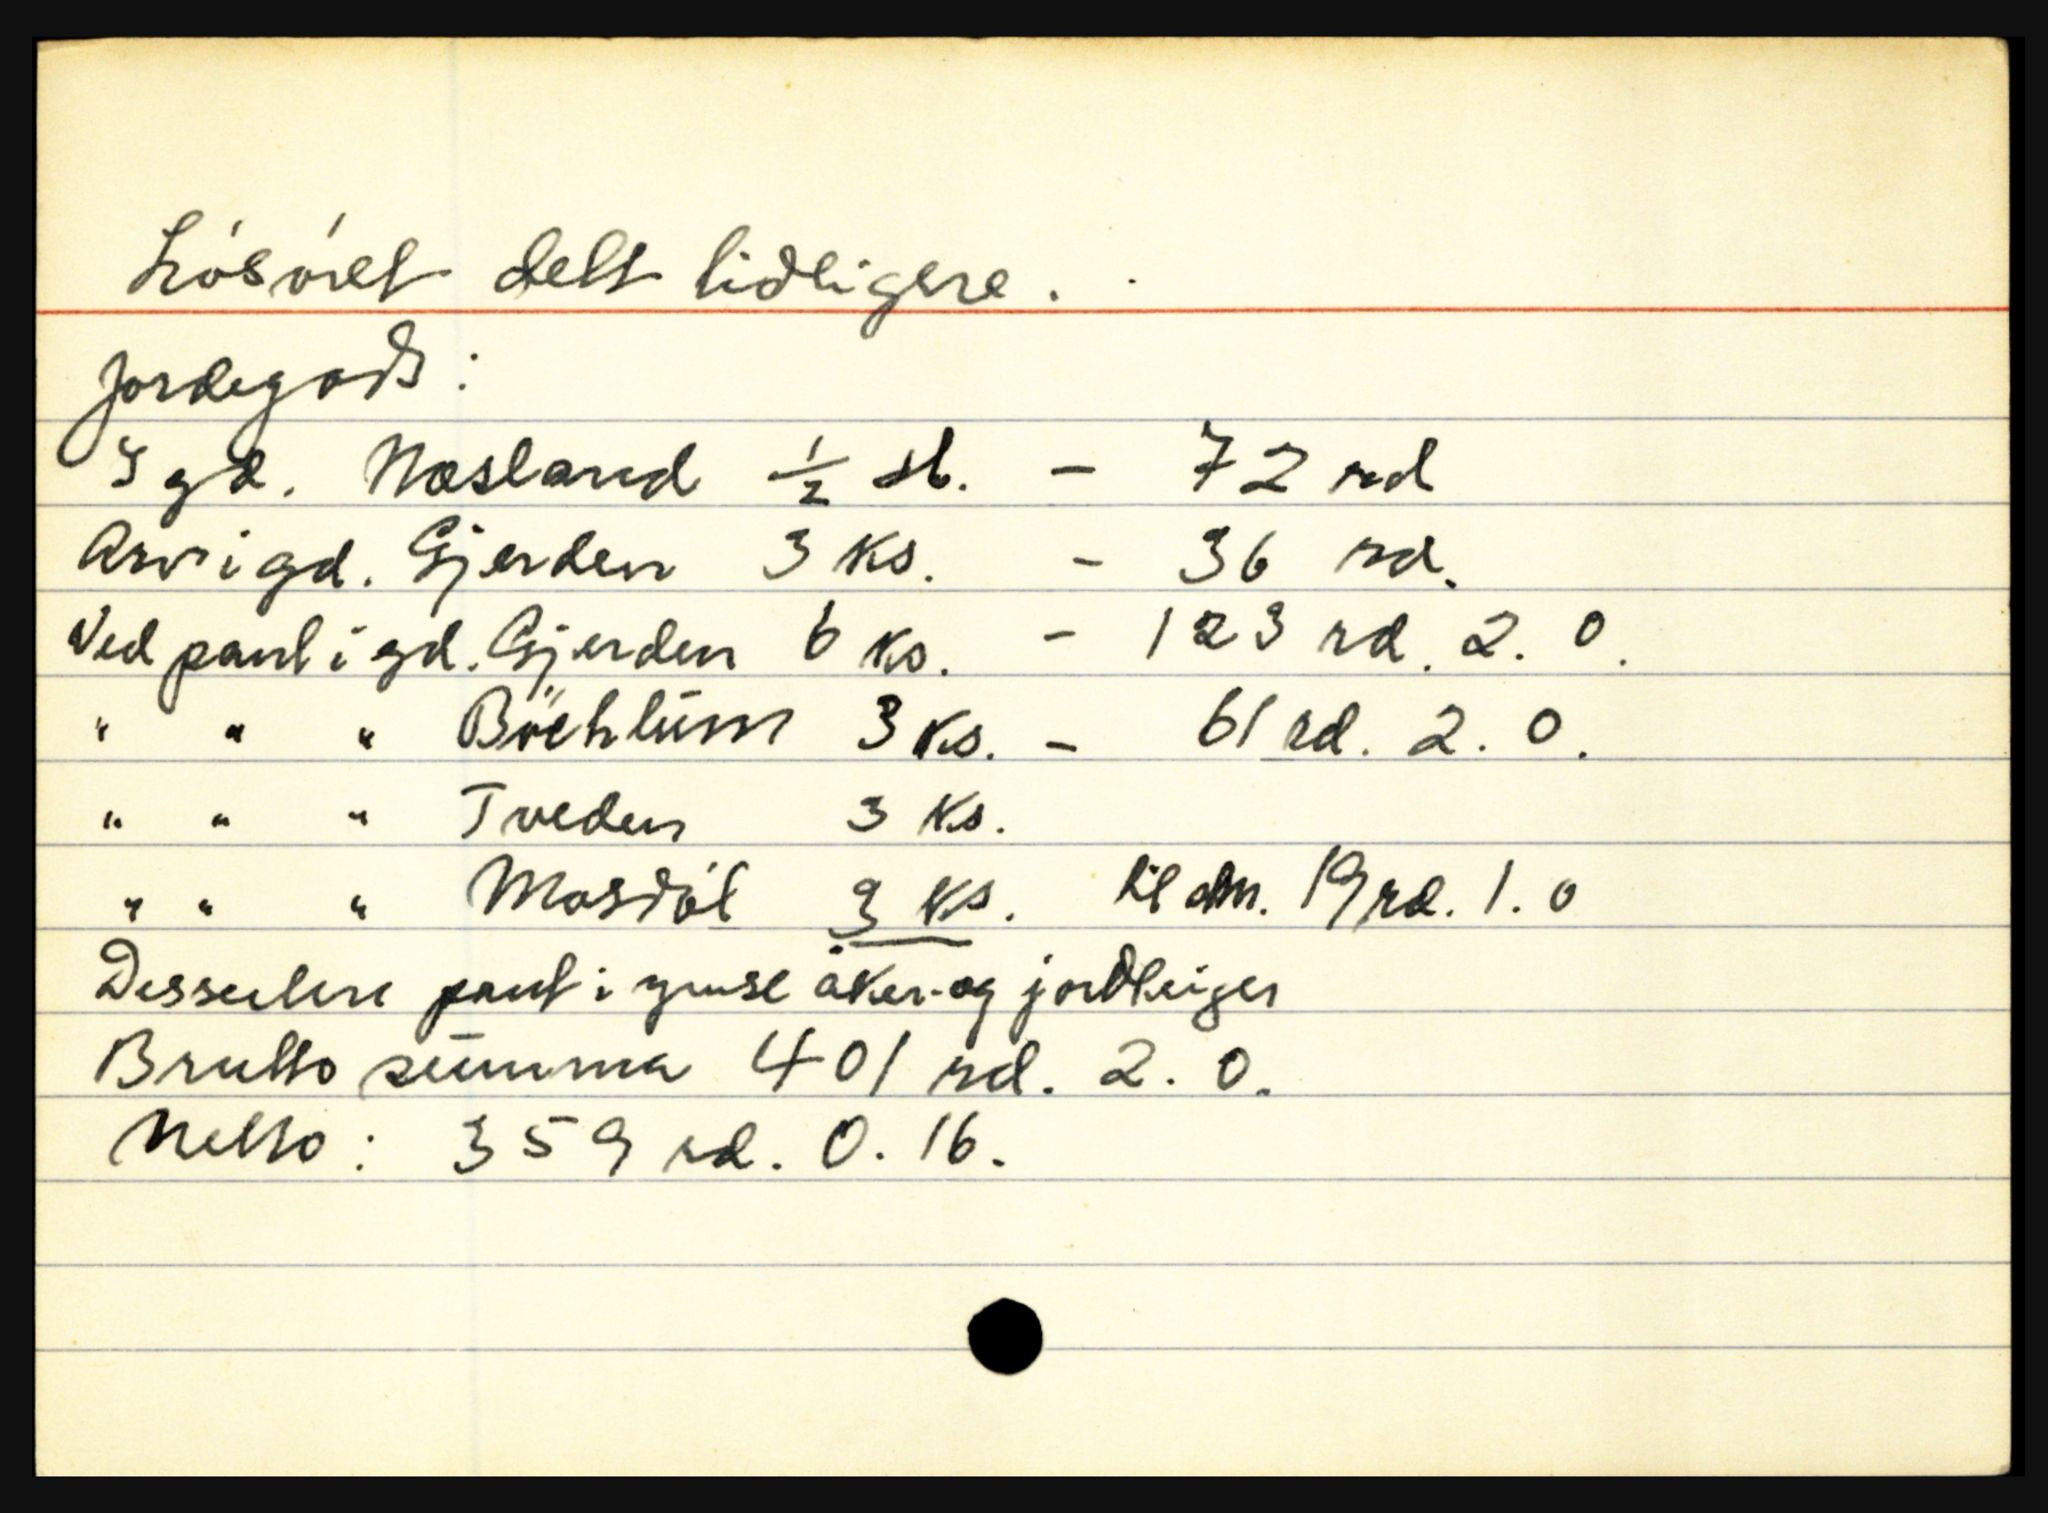 Lösöret delt tidligere.
Jordegods:
I gd. Næsland ½ sk. - 72 rd
Arv i gd. Gjerden 3 ks. - 36 rd.
Ved pant i gd. Gjerden 6 ks. - 123 rd. 2. 0.
" " " Böehlum 3 ks. - 61 rd. 2. 0.
" " " Tveden 3 ks.
" " " Mosdöl 3 ks. til 19 rd. 1. 0
Dessuten pant i ymse åker- og jordteiger
Brutto summa 401 rd. 2. 0.
Netto: 359 rd. 0. 16.